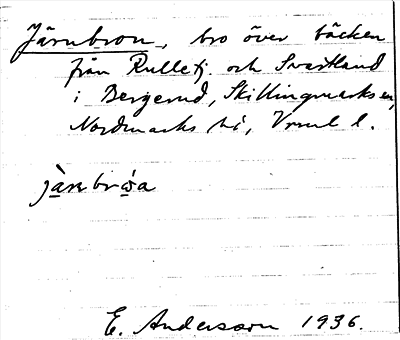 Järnbron, bro över bäcken
från Rulletj. och Svartland
i Bergerud, Skillingmarks sn,
Nordmarks hd, Vrml l.
E. Andersson 1936.